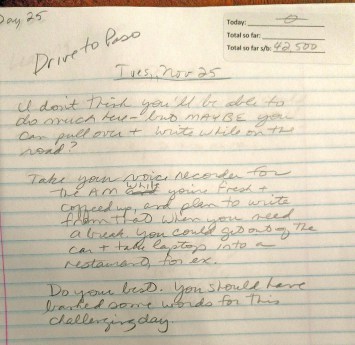 Day 25
Today: 0
Total so far:
Total so far s/b: 42,500
Drive to Paso
Tues, Nov 25
I don't think you'll be able to
do much here - but MAYBE you
can pull over + write while on the
road?
Take your voice recorder for
the AM while you're fresh +
coffeed up, and plan to write
from that when you need
a break. You could get out of the
car + take laptop into a
restaurant, for ex.
Do your best. You should have
banked some words for this
challenging day.